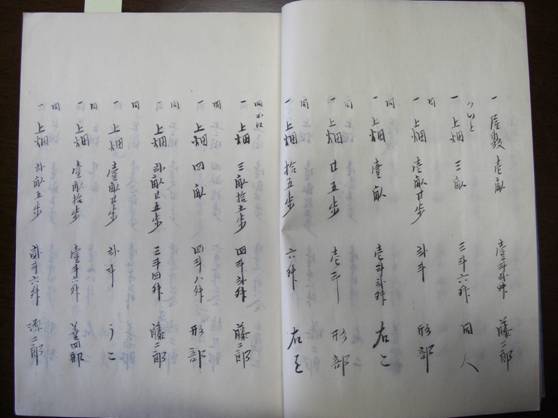 一 屋敷 壱畝 壱斗弐升 藤二郎
一 上畑 三畝 三斗六升 同人
同
一 上畑 壱畝廿歩 弐斗 形部
同
一 上畑 壱畝 壱斗弐升 右こ
同
一 上畑 廿五歩 壱斗 形部
同
一 上畑 拾五歩 六升
一 上畑 三畝拾五歩 四斗弐升 藤二郎
同
一 上畑 四畝 四斗八升 形部
同
一 上畑 弐畝廿五歩 三斗四升 藤二郎
同
一 上畑 壱畝廿歩 弐斗 うこ
同
一 上畑 壱畝拾五歩 壱斗八升 善四郎
同
一 上畑 弐畝五歩 弐斗六升 源二郎